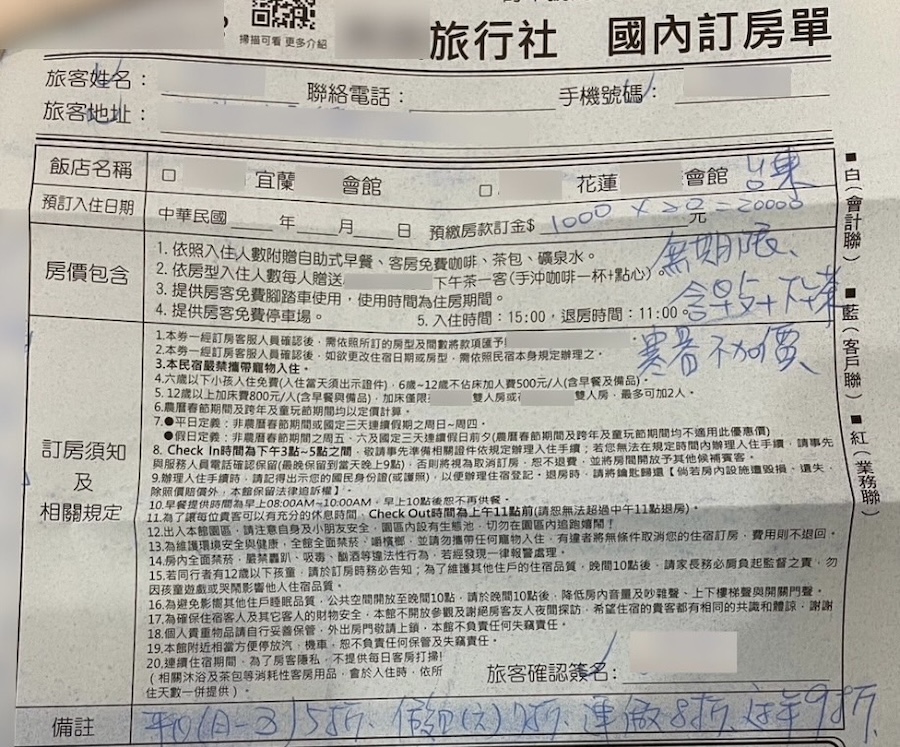 掃描可看 更多介紹
旅行社 國內訂房單
旅客姓名：
聯絡電話：
手機號碼：
旅客地址：
飯店名稱
□ 宜蘭 會館 □ 花蓮 會館 台東
預訂入住日期
中華民國 年 月 日 預繳房款訂金$ 1000 × 20 = 20000 元
房價包含
1. 依照入住人數附贈自助式早餐、客房免費咖啡、茶包、礦泉水。
2. 依房型入住人數每人贈送 下午茶一客(手沖咖啡一杯+點心)。
3. 提供房客免費腳踏車使用，使用時間為住房期間。
4. 提供房客免費停車場。 5. 入住時間：15:00，退房時間：11:00。
無期限、
含早点+下午茶
寒暑不加價
訂房須知
及
相關規定
1.本券一經訂房客服人員確認後，需依照所訂的房型及間數將款項匯予
2.本券一經訂房客服人員確認後，如欲更改住宿日期或房型，需依照民宿本身規定辦理之。
3.本民宿嚴禁攜帶寵物入住。
4.六歲以下小孩入住免費(入住當天須出示證件)，6歲~12歲不佔床加人費500元/人(含早餐及備品)。
5.12歲以上加床費800/人(含早餐與備品)，加床僅限 雙人房或 雙人房，最多可加2人。
6.農曆春節期間及跨年及童玩節期間均以定價計算。
7.●平日定義：非農曆春節期間或國定三天連續假期之周日~周四。
●假日定義：非農曆春節期間之周五、六及國定三天連續假日前夕(農曆春節期間及跨年及童玩節期間均不適用此優惠價)
8. Check In時間為下午3點~5點之間，敬請事先準備相關證件依規定辦理入住手續；若您無法在規定時間內辦理入住手續，請事先
與服務人員電話確認保留(最晚保留到當天晚上9點)，否則將視為取消訂房，恕不退費，並將房間開放予其他候補賓客。
9.辦理入住手續時，請記得出示您的國民身份證(或護照)，以便辦理住宿登記。退房時，請將鑰匙歸還【倘若房內設施遭毀損、遺失，
除照價賠償外，本館保留法律追訴權】。
10.早餐提供時間為早上08:00AM~10:00AM，早上10點後恕不再供餐。
11.為了讓每位貴客可以有充分的休息時間，Check Out時間為上午11點前(請恕無法超過中午11點退房)。
12.出入本館園區，請注意自身及小朋友安全，園區內設有生態池，切勿在園區內追跑嬉鬧！
13.為維護環境安全與健康，全館全面禁菸、嚼檳榔，並請勿攜帶任何寵物入住，有違者將無條件取消您的住宿訂房，費用則不退回。
14.房內全面禁菸，嚴禁轟趴、吸毒、酗酒等違法性行為，若經發現一律報警處理。
15.若同行者有12歲以下孩童，請於訂房時務必告知；為了維護其他住戶的住宿品質，晚間10點後，請家長務必肩負起監督之責，勿
因孩童遊戲或哭鬧影響他人住宿品質。
16.為避免影響其他住戶睡眠品質，公共空間開放至晚間10點，請於晚間10點後，降低房內音量及吵雜聲、上下樓梯聲與開關門聲。
17.為確保住宿客人及其它客人的財物安全，本館不開放參觀及謝絕房客友人夜間探訪，希望住宿的貴客都有相同的共識和體諒，謝謝
18.個人貴重物品請自行妥善保管，外出房門敬請上鎖，本館不負責任何失竊責任。
19.本館附近相當方便停放汽，機車，恕不負責任何保管及失竊責任。
20.連續住宿期間，為了房客隱私，不提供每日客房打掃!
(相關沐浴及茶包等消耗性客房用品，會於入住時，依所
住天數一併提供)。
旅客確認簽名：
備註
平日(日-五)5折、假日(六)7折、連假8折、过年9折、
■白(會計聯)
■藍(客戶聯)
■紅(業務聯)